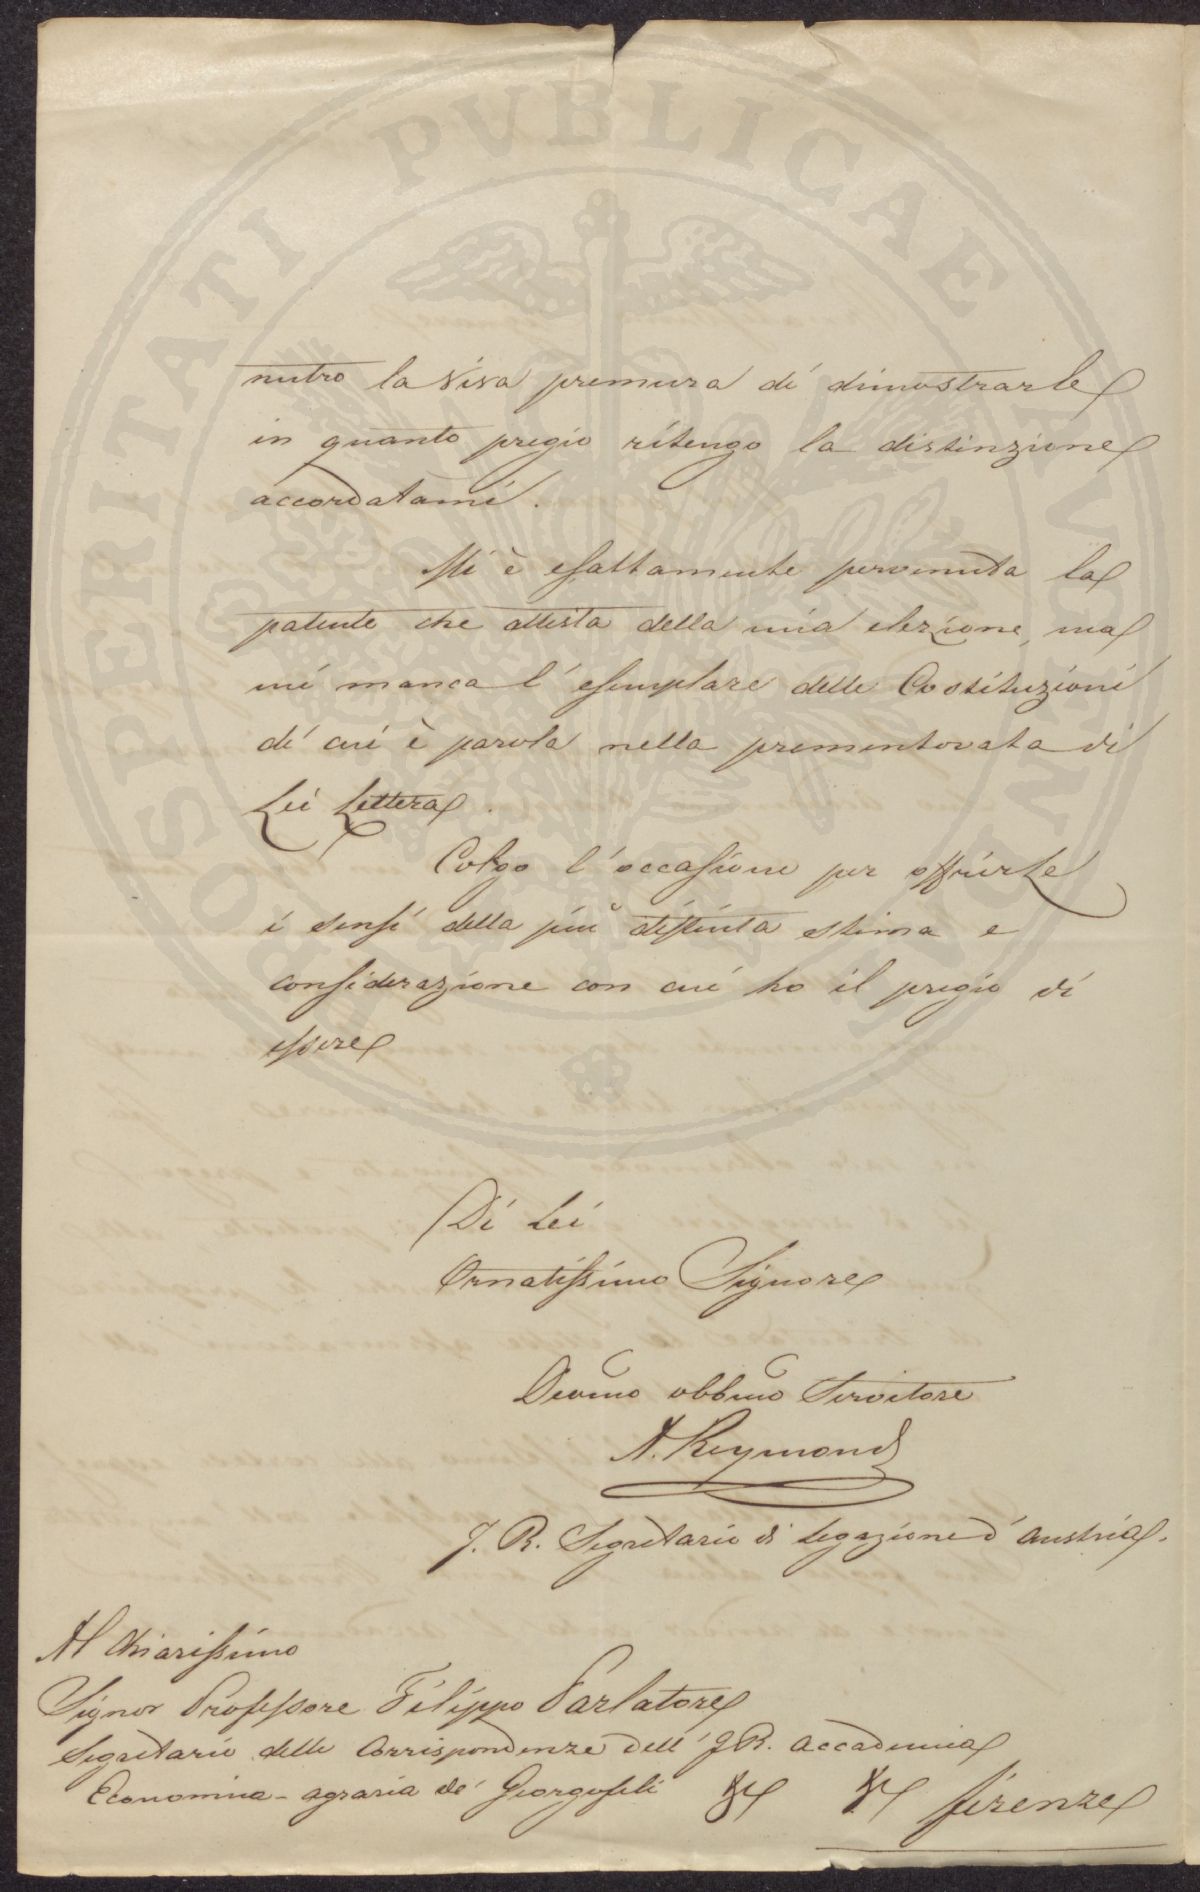 PROSPERITATI PVBLICAE AVGENDAE
nutro la viva premura di dimostrarle
in quanto pregio ritengo la distinzione
accordatami.
Mi è esattamente pervenuta la
patente che attista della mia elezione, ma
mi manca l'esemplare delle Costituzioni
di cui è parola nella prementovata di
Lei Lettera.
Colgo l'occasione per offrirLe
i sensi della più distinta stima e
considerazione con cui ho il pregio di
essere
Di Lei
Ornatissimo Signore
Devmo obbmo Servitore
A. Reymond
J. R. Segretario di Legazione d'Austria.
Al Chiarissimo
Signor Professore Filippo Parlatore
Segretario delle Corrispondenze dell' J. R. Accademia
Economica-agraria de' Georgofili
Firenze